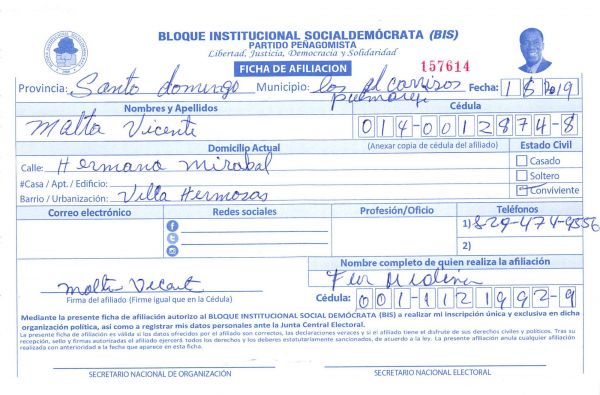 BLOQUE INSTITUCIONAL SOCIALDEMÓCRATA (BIS)
PARTIDO PEÑAGOMISTA
Libertad, Justicia, Democracia y Solidaridad
FICHA DE AFILIACION
157614
Provincia: Santo domingo Municipio: los alcarrizos Fecha: 1 8 2019
Nombres y Apellidos Cédula
Malta Vicente 014-0012874-8
Domicilio Actual (Anexar copia de cédula del afiliado) Estado Civil
Calle: Hermana mirabal Casado
#Casa / Apt. / Edificio: Soltero
Barrio / Urbanización: Villa Hermosas Conviviente
Correo electrónico Redes sociales Profesión/Oficio Teléfonos
1) 829-474-9556
2)
Nombre completo de quien realiza la afiliación
Malta Vicente
Firma del afiliado (Firme igual que en la Cédula) Cédula: 001-1121992-9
Mediante la presente ficha de afiliación autorizo al BLOQUE INSTITUCIONAL SOCIAL DEMÓCRATA (BIS) a realizar mi inscripción única y exclusiva en dicha
organización política, así como a registrar mis datos personales ante la Junta Central Electoral.
La presente ficha de afiliación es válida si los datos ofrecidos por el afiliado son correctos, las declaraciones veraces y si el afiliado tiene el disfrute de sus derechos civiles y políticos. Tras su
recepción, sello y firmas autorizadas el afiliado ejercerá todos los derechos y los deberes estatutariamente sancionados, de acuerdo a la ley. La presente afiliación anula cualquier afiliación
realizada con anterioridad a la fecha que aparece en esta ficha.
SECRETARIO NACIONAL DE ORGANIZACIÓN SECRETARIO NACIONAL ELECTORAL